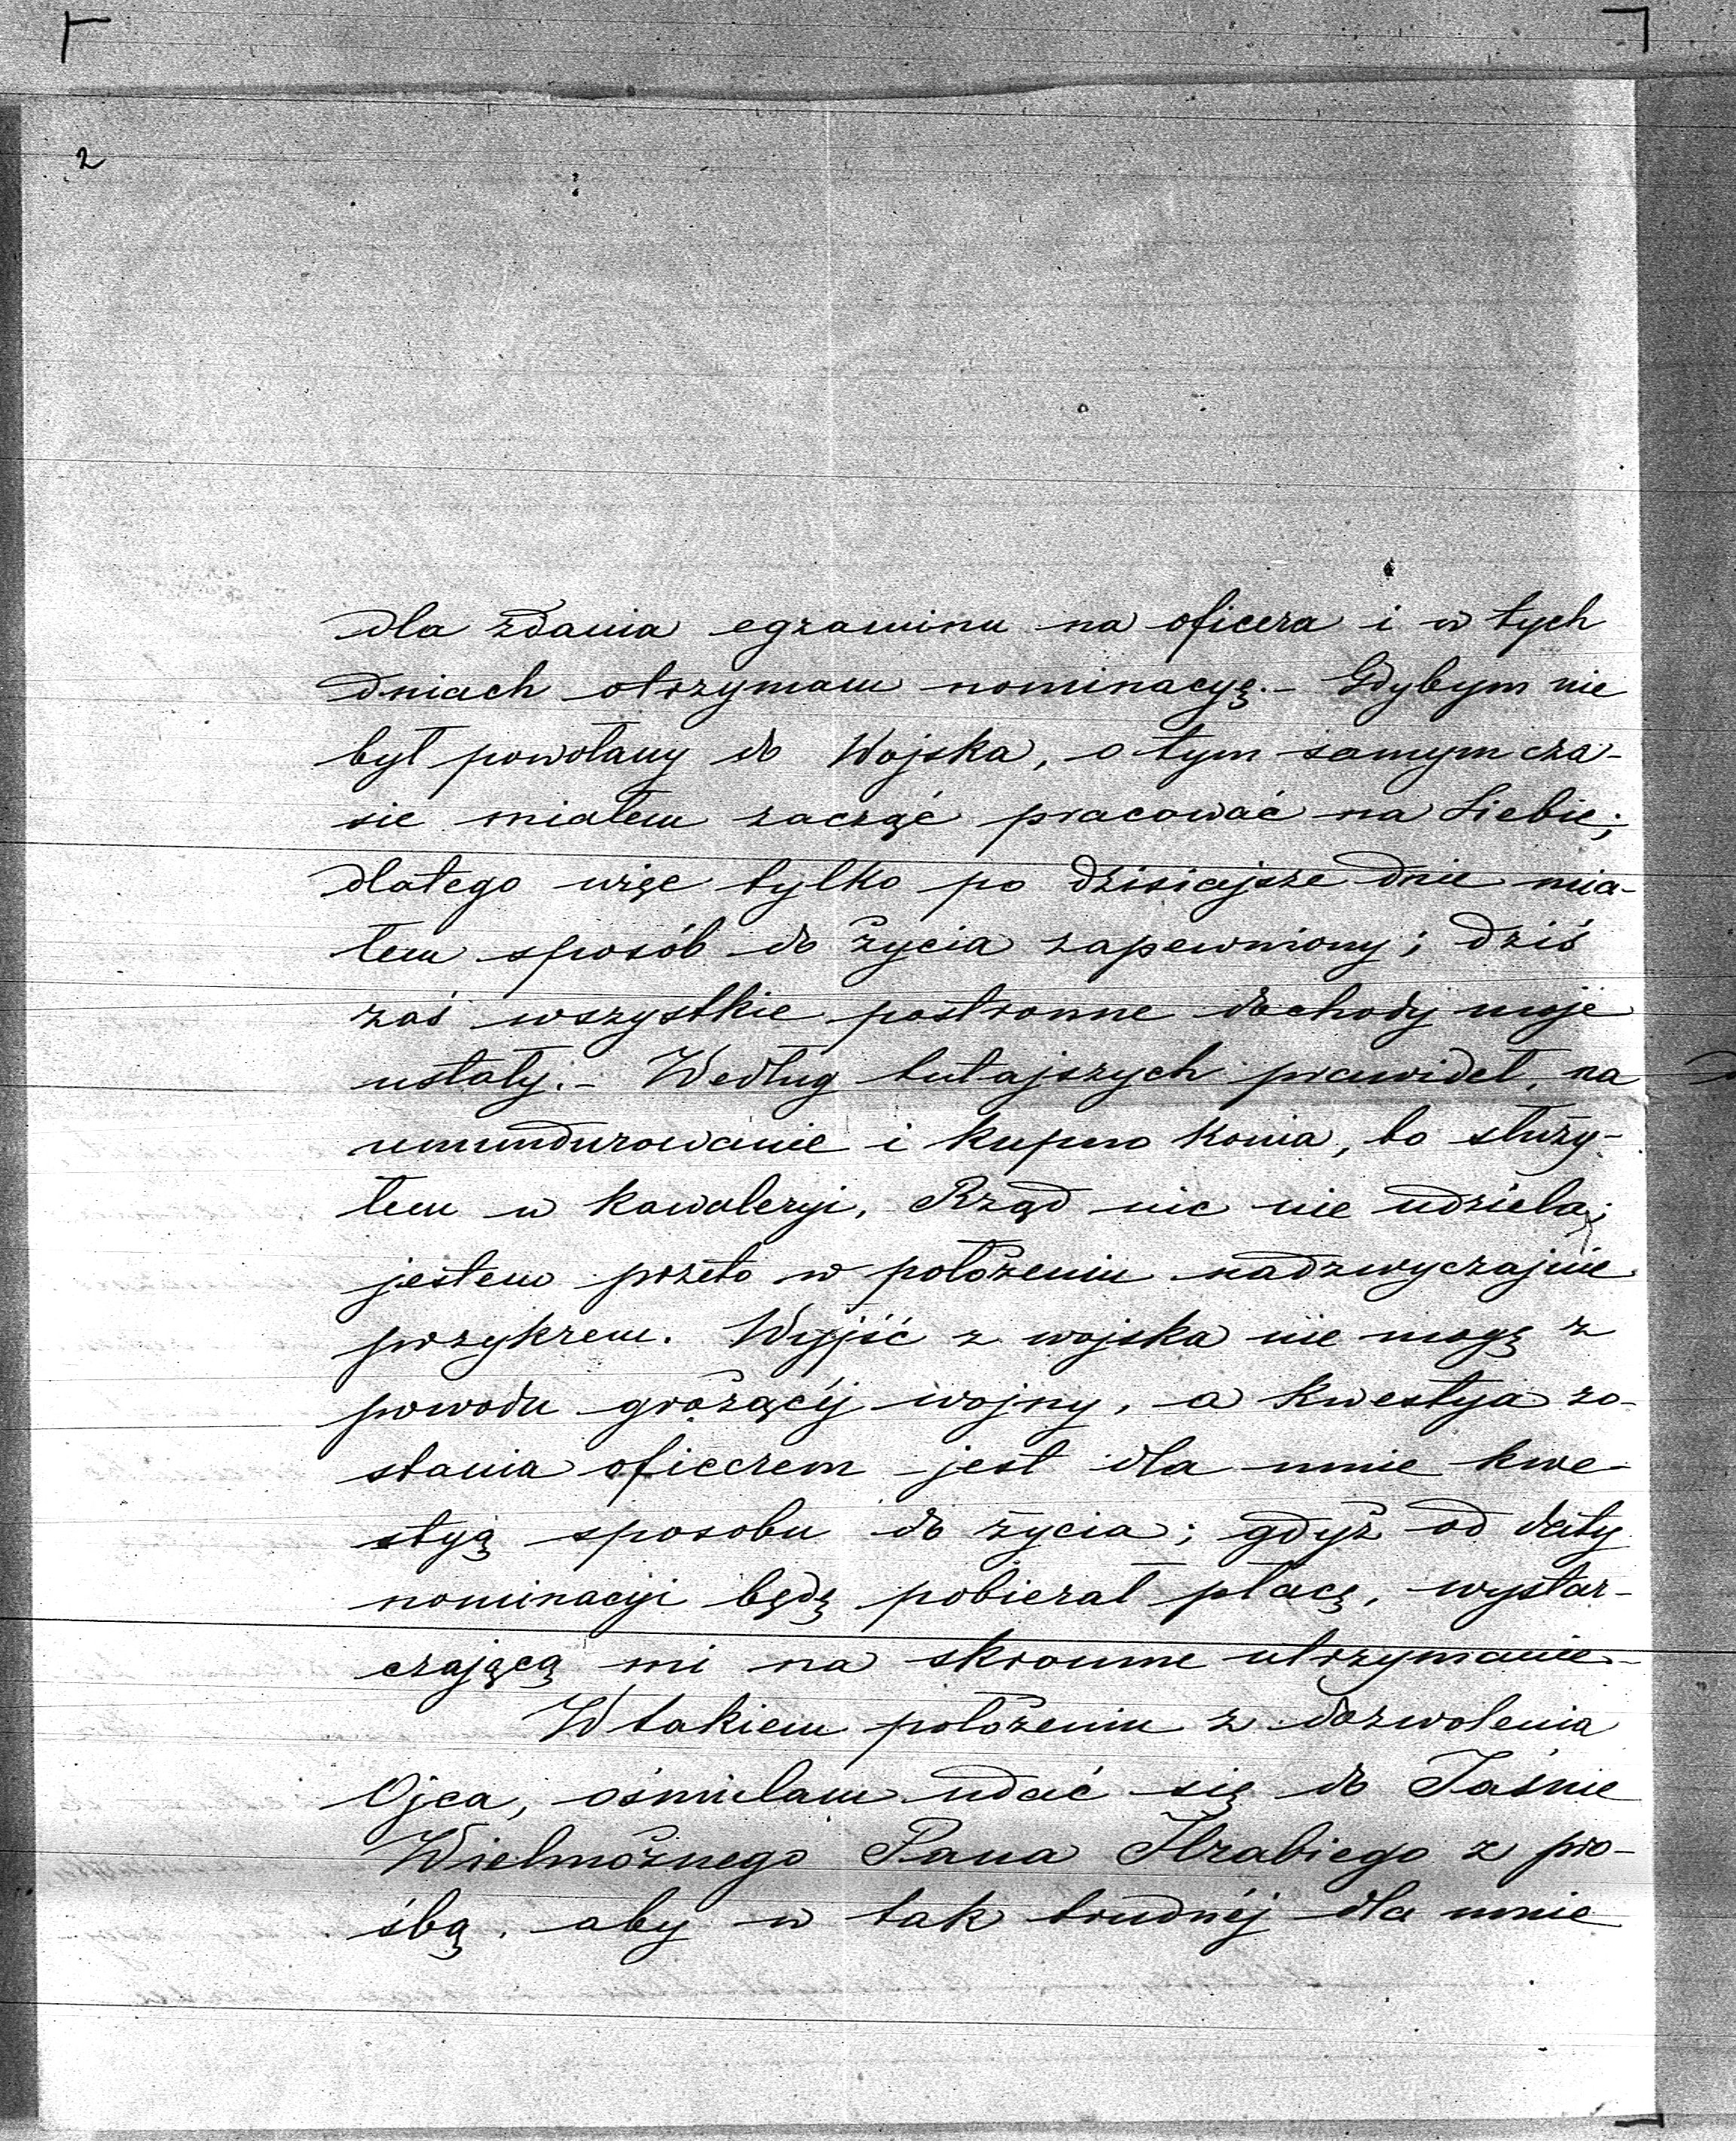 2
dla zdania egzaminu na oficera i w tych
dniach otrzymam nominacyę.- Gdybym nie
był powołany do Wojska, o tym samym cza-
sie miałem zacząć pracować na Siebie;
dlatego więc tylko po dzisiejsze dnie mia-
łem sposób do życia zapewniony; dziś
zaś wszystkie postronne dochody moje
ustały.- Według tutajszych prawideł, na
umundurowanie i kupno konia, bo służy-
łem w kawaleryi, Rząd nic nie udziela;
jestem przeto w położeniu nadzwyczajnie
przykrem. Wyjść z wojska nie mogę z
powodu grożącéj wojny, a kwestya zo-
stania oficerem jest dla mnie kwe-
styą sposobu do życia; gdyż od daty
nominacyi będę pobierał płacę, wystar-
czającą mi na skromne utrzymanie.-
W takiem położeniu z dozwolenia
Ojca, ośmielam udać się do Jaśnie
Wielmożnego Pana Hrabiego z pro-
śbą, aby w tak trudnéj dla mnie